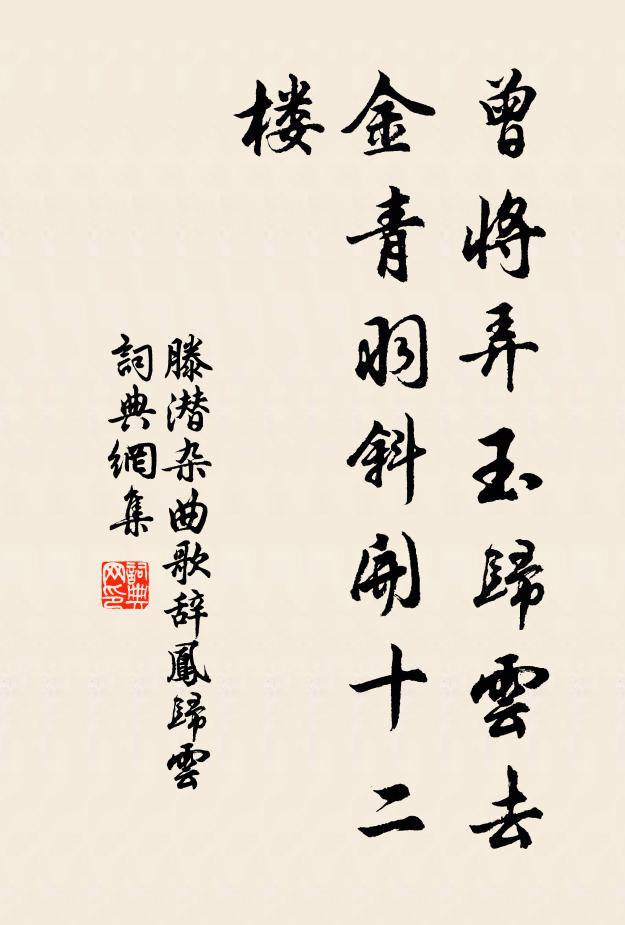 曾將弄玉歸雲去
金青羽斜開十二
楼
滕潜杂曲歌辞鳳歸雲
詞典網集
詞典网印